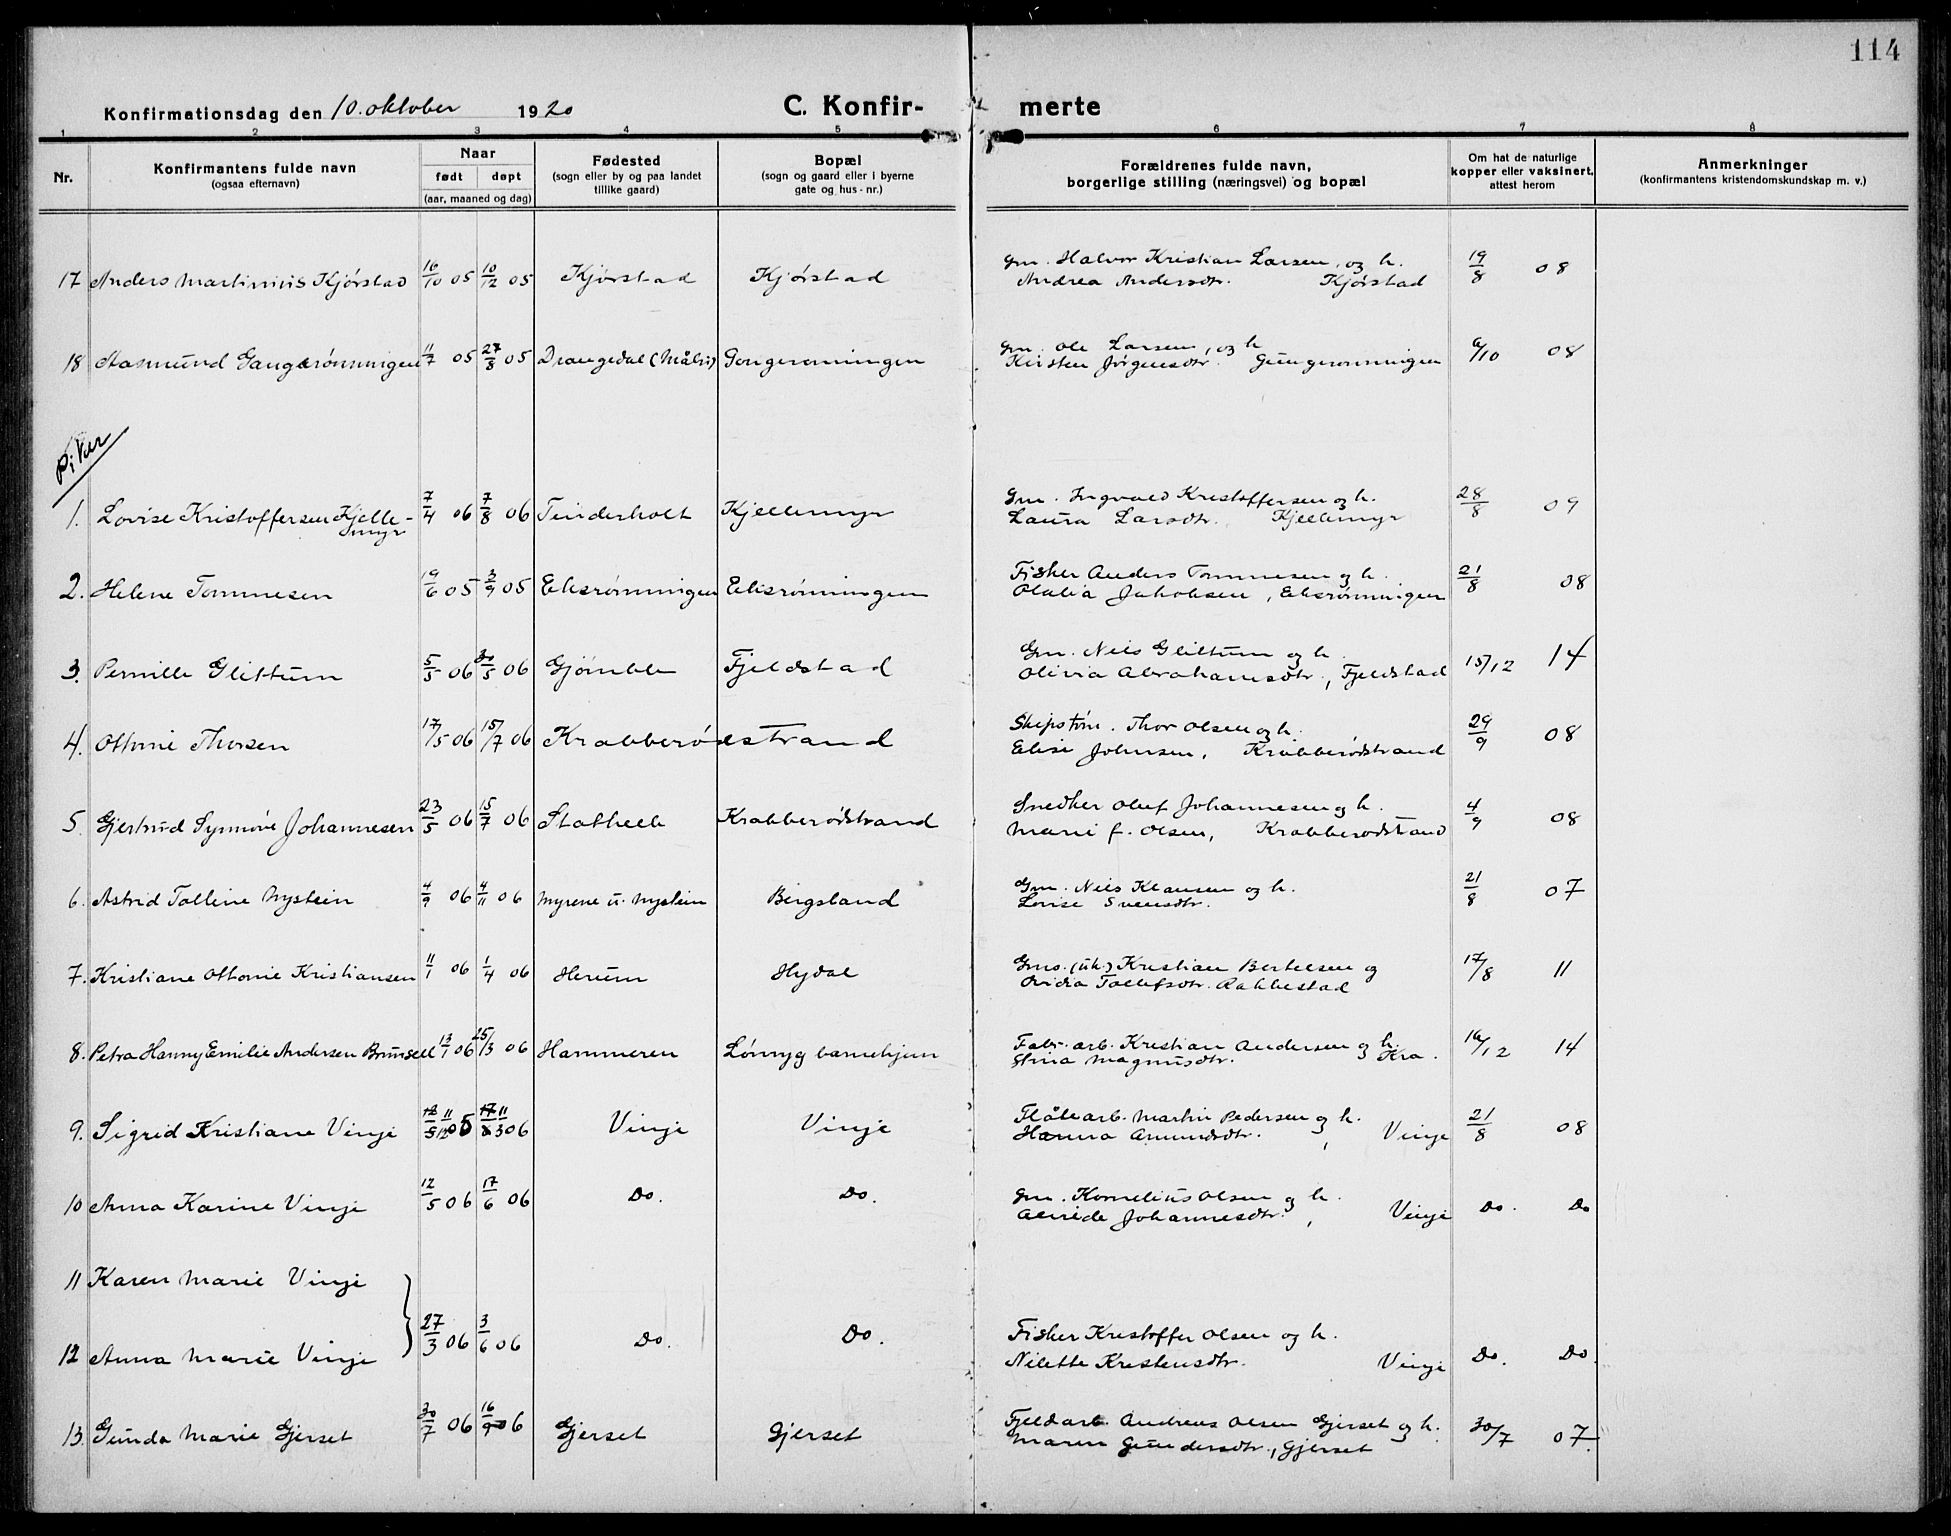 114
Konfirmationsdag den 10. oktober 1920
C. Konfir- merte
1 2 3 4 5 6 7 8
Nr.
Konfirmantens fulde navn
(ogsaa efternavn)
Naar
født døpt
(aar, maaned og dag)
Fødested
(sogn eller by og paa landet
tillike gaard)
Bopæl
(sogn og gaard eller i byerne
gate og hus - nr.)
Forældrenes fulde navn,
borgerlige stilling (næringsvei) og bopæl
Om hat de naturlige
kopper eller vaksinert,
attest herom
Anmerkninger
(konfirmantens kristendomskundskap m. v.)
Gm. Halvor Kristian Larsen, og h.
17 Anders Martinius Kjørstad 16/10 05 10/12 05 Kjørstad Kjørstad Andrea Andersdtr. Kjørstad 19/8 08
Gm. Ole Larsen, og h
18 Aasmund Gangerønningen 11/7 05 27/8 05 Drangedal Gongerønningen Kirsten Jørgensdtr. Gungerønningen 6/10 08
Piker
Gm. Ingvald Kristoffersen og h.
1. Lovise Kristoffersen Kjelle-
myr 7/4 06 7/8 06 Tinderholt Kjellemyr Laura Larsdtr. Kjellemyr 28/8 09
Fisker Anders Tommesen og h.
2. Helene Tommesen 19/6 05 3/9 05 Eksrønningen Eksrønningen Olalia Jakobsen, Eksrønningen 21/8 08
Gm. Nils Glittum og h.
3. Pernille Glittum 5/5 06 30/5 06 Gjømle Fjeldstad Olivia Abrahamsdtr., Fjeldstad 15/12 14
Skipstøm. Thor Olsen og h.
4. Othonie Thorsen 17/5 06 15/7 06 Krabberødstrand Elise Johnsen, Krabberødstrand 29/9 08
Snedker Oluf Johannesen og h.
5. Gjertrud Synnøve Johannesen 23/5 06 15/7 06 Stathelle Krabberødstrand Marie f. Olsen, Krabberødstrand 4/9 08
Gm. Nils Klausen og h.
6. Astrid Talline Nystein 4/9 06 4/11 06 Myrene u. Nystein Bergsland Lovise Svensdtr. 21/8 07
Gms. (uk.) Kristian Bertelsen og
7. Kristiane Othonie Kristiansen 11/1 06 1/4 06 Herum Hydal Ovidia Tollefsdtr. Rakkestad 17/8 11
Fabr. arb. Kristian Andersen og h.
8. Petra Hanny Emilie Andersen Brunsell 13/1 06 25/3 06 Hammeren Lønnyg barnehjem Stina Magnusdtr. Kra. 16/12 14
Flåtearb. Martin Pedersen og h.
9. Sigrid Kristiane Vinje 11/12 05 11/3 06 Vinje Vinje Hanna Amundsdtr., Vinje 21/8 08
Gm. Kornelius Olsen og h.
10 Anna Karine Vinje 12/5 06 17/6 06 Do. Do. Alvide Johannesdtr., Vinje Do. Do
11 Karen Marie Vinje
Fisker Kristoffer Olsen og h.
12 Anna Marie Vinje 27/3 06 3/6 06 Do. Do. Nilette Kristensdtr. Vinje Do. Do.
Fjeldarb. Andreas Olsen Gjerset og h.
13. Gunda Marie Gjerset 30/7 06 16/9 06 Gjerset Gjerset Maren Gundersdtr., Gjerset 30/7 07.